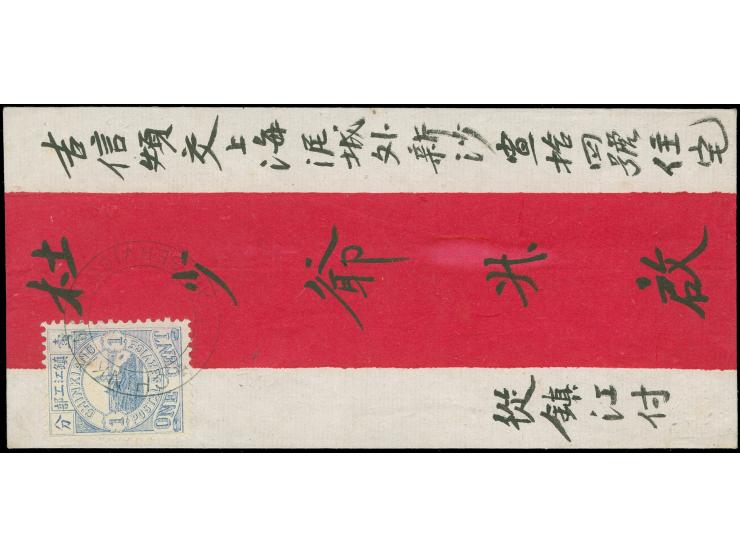 吉信煩交上海泥城外新沙宣拾四號住宅
杜少爺升啟
從鎮江付
壹分
鎮江工部
CHINKIANG
POSTAL SERVICE
ONE CENT
1
1